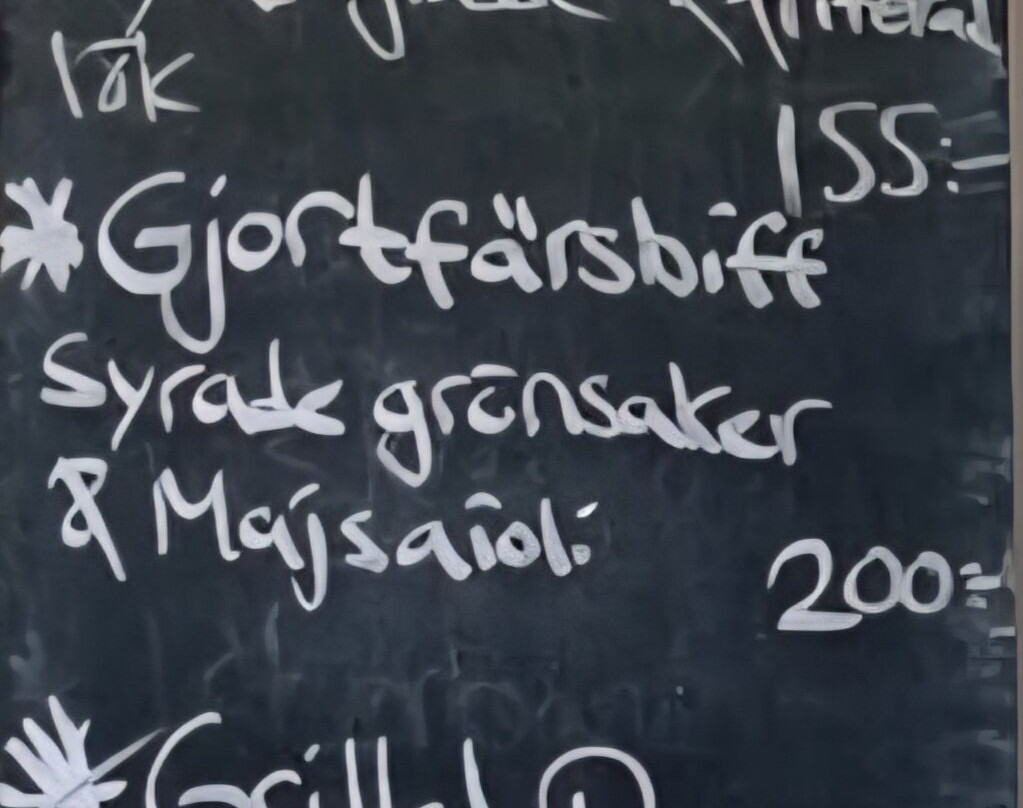 friterad
lök
155:-
Gjortfärsbiff
Syrade grönsaker
& Majsaioli
200:-
Grillad